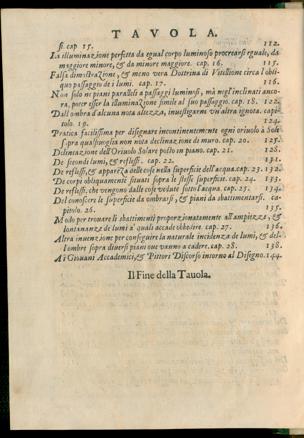 TAVOLA.
si. cap. 15. 112.
La illuminazione perfetta da egual corpo luminoso procrearsi eguale, da
maggiore minore, & da minore maggiore. cap. 16. 115.
Falsa dimostrazione, & meno vera Dottrina di Vitellione circa l'obli-
quo passaggio de i lumi. cap. 17. 116.
Non solo ne piani paralleli a passaggi luminosi, mà negl'inclinati anco-
ra, poter esser la illuminazione simile al suo passaggio. cap. 18. 122.
Dall'ombra d'alcuna nota altezza, inuestigarne vn'altra ignota. capi-
tolo. 19. 124.
Pratica facilissima per disegnare incontinentemente ogni oriuolo à Sole
sopra qual si voglia non nota declinazione di muro. cap. 20. 125.
Delineazione dell'Oriuolo Solare posto in piano. cap. 21. 128.
De secondi lumi, & reflessi. cap. 22. 131.
De reflessi, & apparenza delle cose nella superficie dell'acqua. cap. 23. 132.
De corpi obliquamente situati sopra le stesse superficie. cap. 24. 133.
De reflessi, che vengono dalle cose vedute sotto l'acqua. cap. 25. 134.
Del conoscere le superficie da ombrarsi, & piani da sbattimentarsi. ca-
pitolo. 26. 135.
Modo per trouare li sbattimenti proporzionatamente all'ampiezza, &
lontananza de lumi a' quali accade obbedire. cap. 27. 136.
Altra inuenzione per conseguire la naturale incidenza de lumi, & del-
l'ombre sopra diuersi piani oue vanno a cadere. cap. 28. 138.
Ai Giouani Accademici, & Pittori Discorso intorno al Disegno. 144.
Il Fine della Tauola.